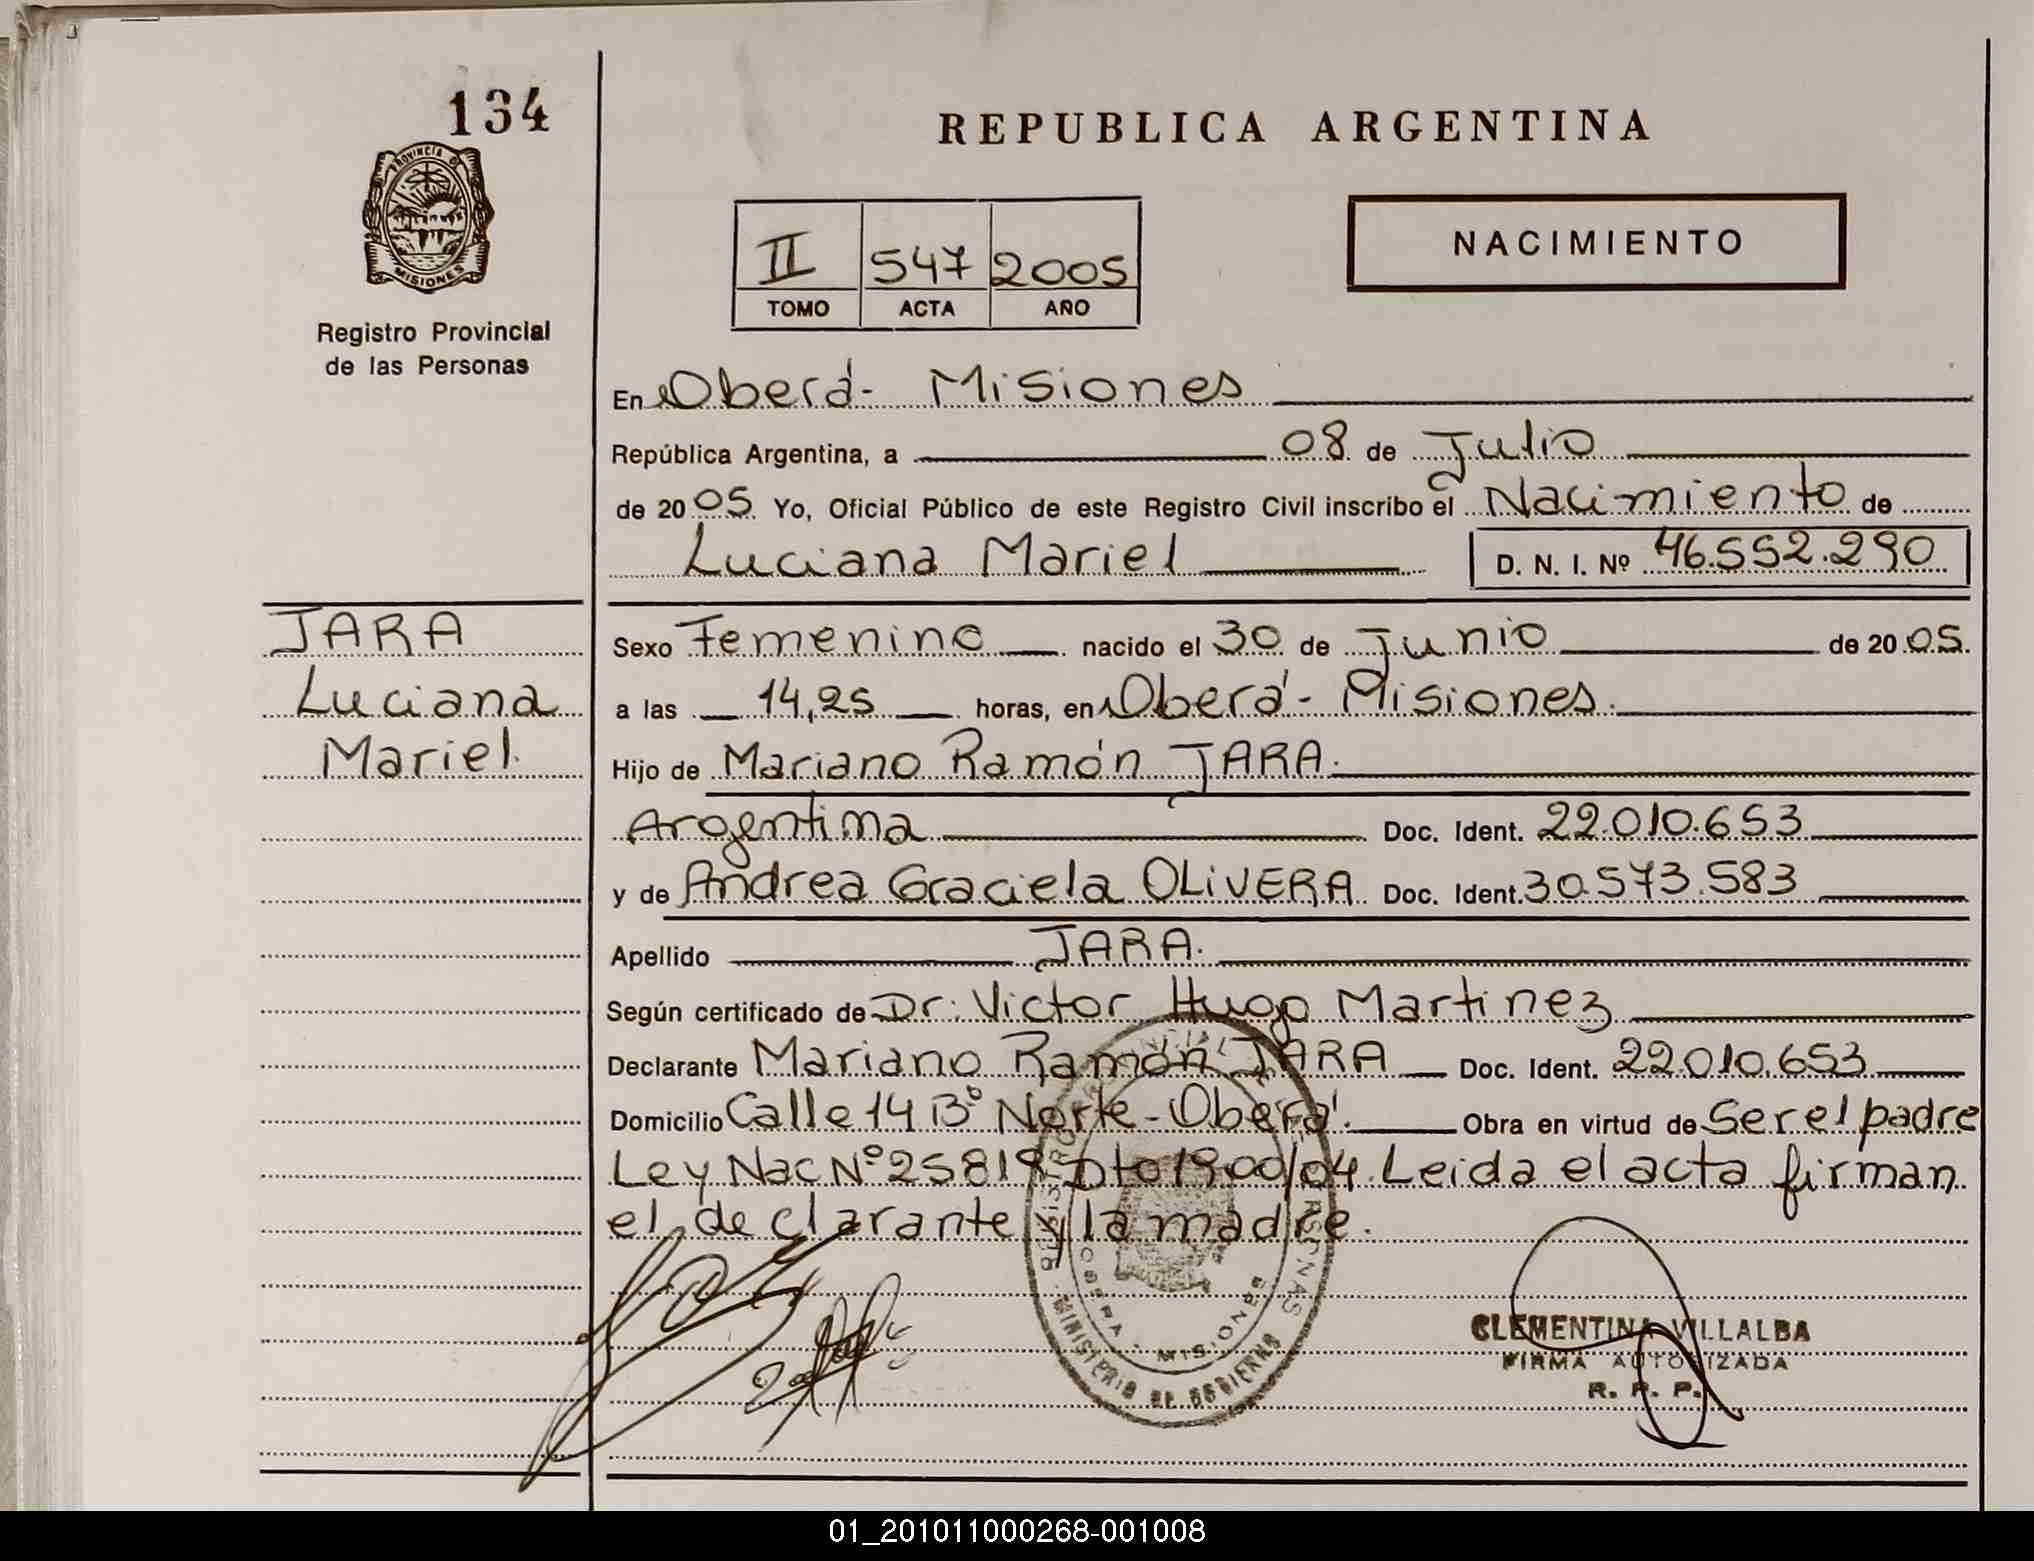 134
PROVINCIA DE
MISIONES
Registro Provincial
de las Personas
REPUBLICA ARGENTINA
II 547 2005
TOMO ACTA AÑO
NACIMIENTO
En Oberá- Misiones
República Argentina, a 08 de Julio
de 2005 Yo, Oficial Público de este Registro Civil inscribo el Nacimiento de
Luciana Mariel D. N. I. Nº 46.552.290
JARA
Luciana
Mariel.
Sexo Femenino nacido el 30 de Junio de 2005.
a las 14,25 horas, en Oberá- Misiones.
Hijo de Mariano Ramón JARA.
Argentina Doc. Ident. 22.010.653
y de Andrea Graciela OLIVERA Doc. Ident. 30.573.583
Apellido JARA.
Según certificado de Dr. Victor Hugo Martinez
Declarante Mariano Ramón JARA Doc. Ident. 22.010.653
Domicilio Calle 14 Bº Norte-Oberá. Obra en virtud de Ser el padre
Ley Nac Nº 25819 Dto 1900/04. Leida el acta firman
el declarante y la madre.
MINISTERIO DE GOBIERNO
OBERA - MISIONES
CLEMENTINA VILLALBA
FIRMA AUTORIZADA
R. P. P.
01_201011000268-001008